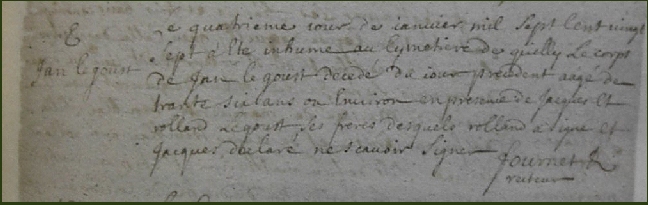 E
Jan legoust
Le quatrieme iour de ianvier mil sept Cent vingt
sept a Ete inhumé au Cymetiere de quilly Le corps
de Jan le goust decedé du iour precedent aagé de
trante six ans ou Environ en presence de Jacques Et
rolland Legoust ses freres desquels rolland a signé et
Jacques declaré ne scavoir signer
fournet
recteur